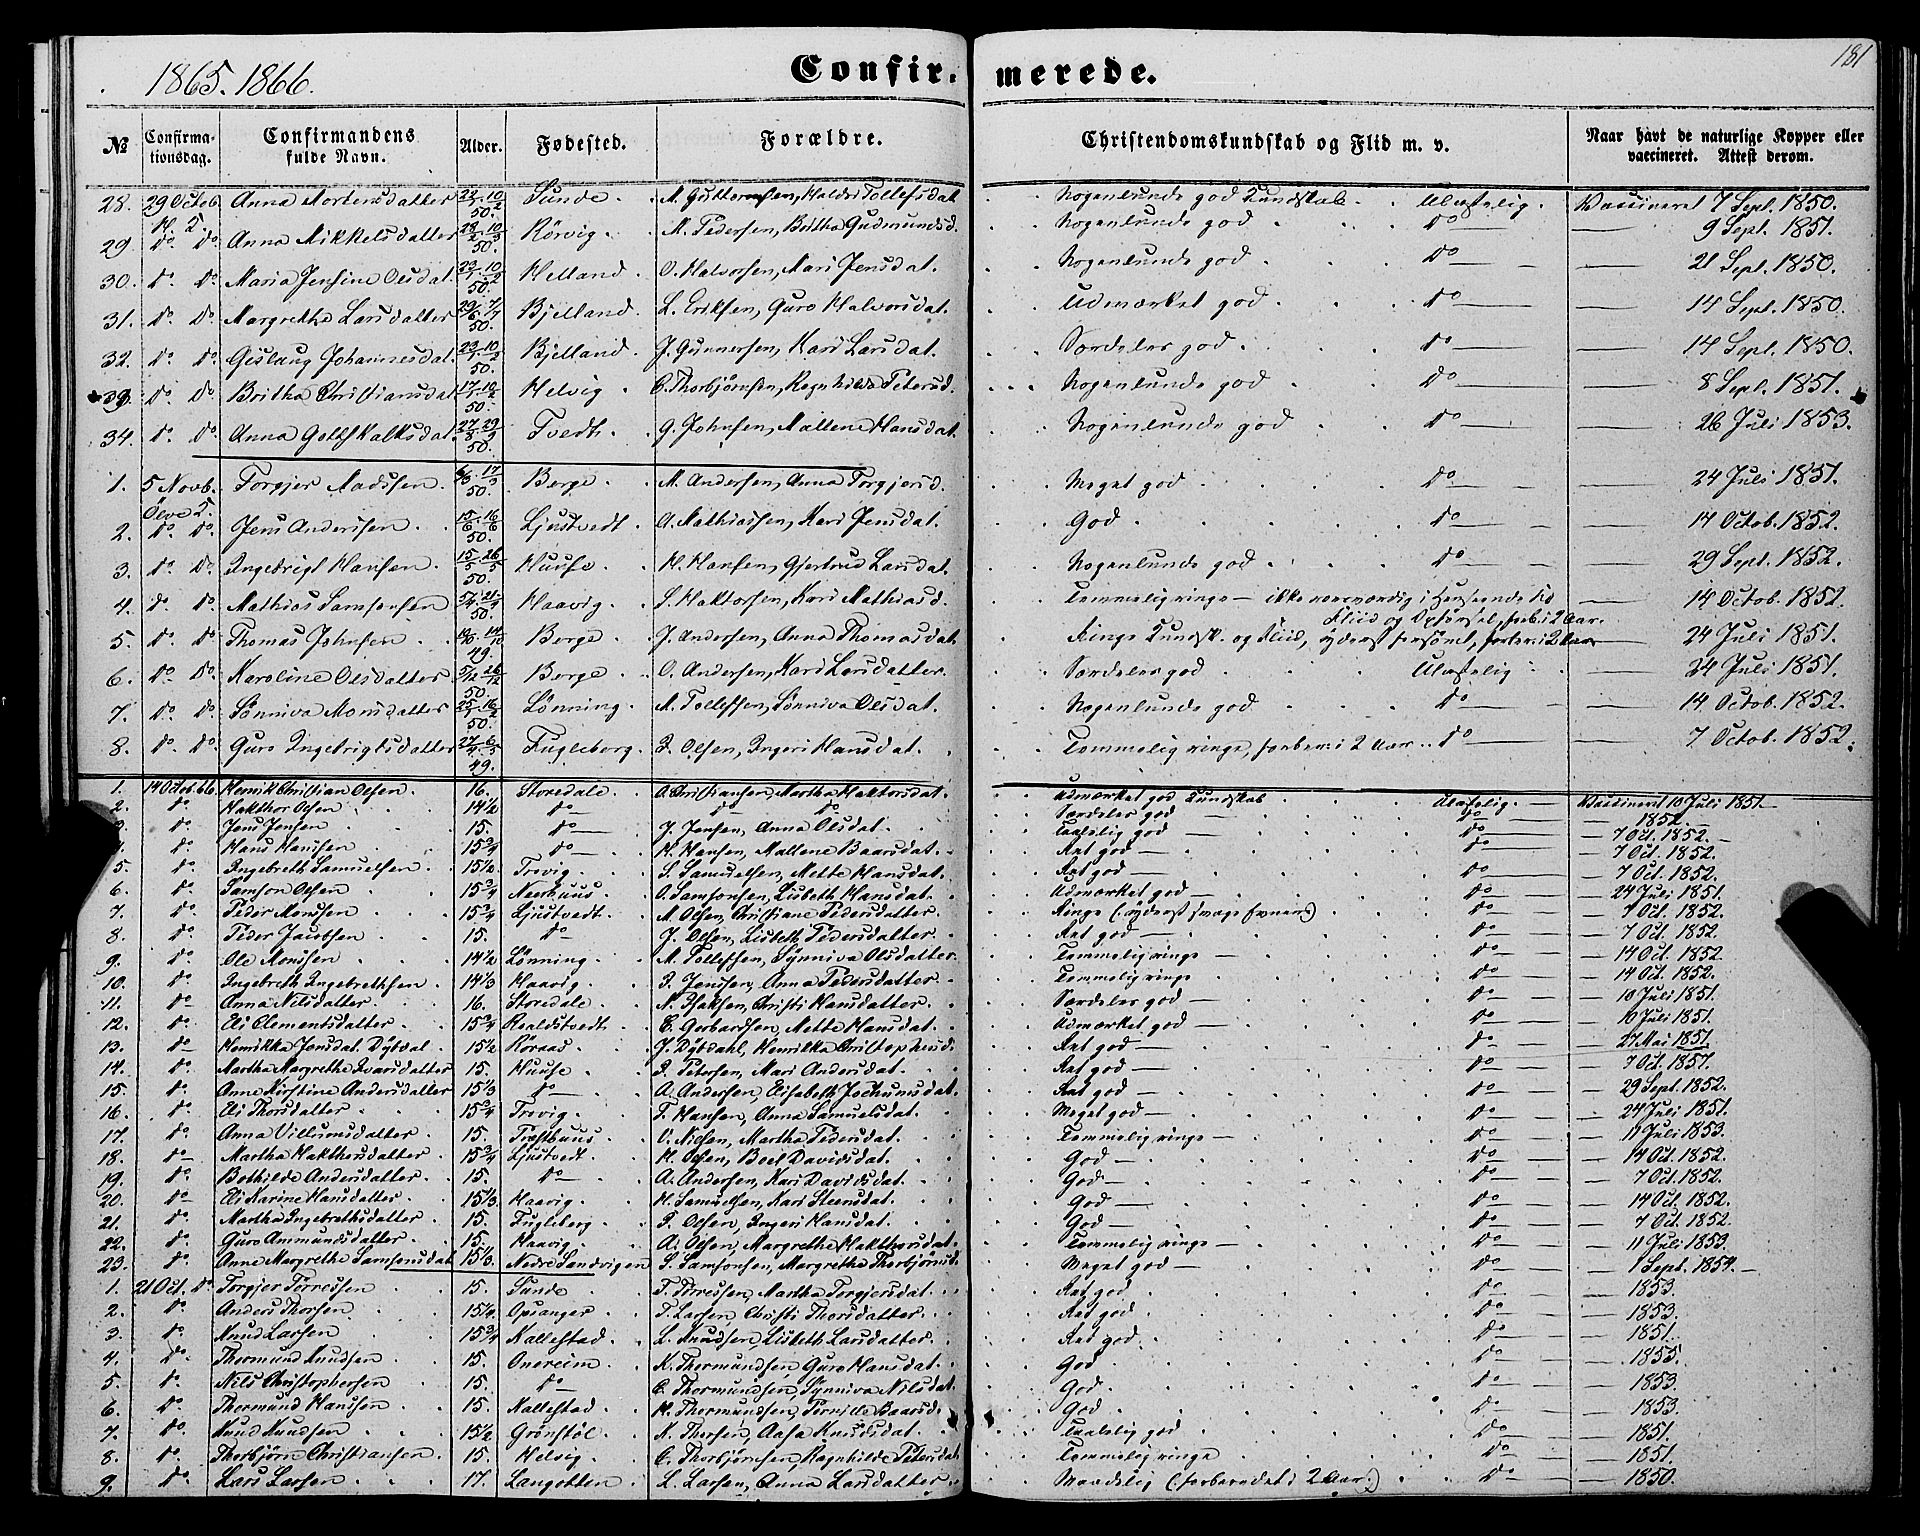 181
1865. 1866.
Confirmerede.
№ Confirmationsdag. Confirmandens fulde Navn. Alder. Fødested. Forældre. Christendomskundskab og Flid m. v. Naar havt de naturlige Kopper eller vaccineret. Attest derom.
28. 29 Octob. H. S. Anna Mortensdatter 50. Sunde M. Guttormsen, Tollefsdat Nogenlunde god Kundskab. Ulastelig Vaccineret 7 Sept. 1850.
29. do do Anna Mikkelsdatter 50. Rörvig M. Pedersen, Britha Gudmundsd. Nogenlunde god do 9 Sept. 1851.
30. do do Maria Jensine Olsdat. 50. Helland O. Halvorsen, Mari Jensdat. Nogenlunde god do 21 Sept. 1850.
31. do do Margrethe Larsdatter 50. Bjelland L. Eriksen, Guro Halvorsdat. Udmærket god do 14 Sept. 1850.
32. do do Gislaug Johannesdat. 50. Bjelland J. Gunnersen, Kari Larsdat. Særdeles god do 14 Sept. 1850.
33. do do Britha Christiansdat 50. Helvig C. Thorbjørnsen, Ragnhilde Petersd. Nogenlunde god do 8 Sept. 1851.
34. do do Anna Gottskalksdat. 50. Tvedt G. Johnsen, Mallene Hansdat. Nogenlunde god do 26 Juli 1853.
1. 5 Novb. Ölve S. Torgjer Madssen 50. Berge M. Andersen, Anna Torgjersd. Meget god do 24 Juli 1851.
2. do do Jens Anderssen 50. Ljustvedt A. Mathiassen, Kari Jensdat. God do 14 Octob. 1852.
3. do do Ingebrigt Hansen 50. Huuse H. Hansen, Gjertrud Larsdat. Nogenlunde god do 29 Sept. 1852.
4. do do Mathias Samsonsen 50. Haavig S. Haktorsen, Kari Mathiasd. Temmelig ringe – ikke i Henseende til Fliid og Opførsel, forb. i 2 Aar. 14 Octob. 1852.
5. do do Thomas Johnsen 49. Berge J. Andersen, Anna Thomasdat Ringe Kundsk. og Fliid, yderst forsömt, forber. i 2 Aar 24 Juli 1851.
6. do do Karoline Olsdatter 50. Berge O. Andersen, Kari Larsdatter Særdeles god Ulastelig 24 Juli 1851.
7. do do Sönniva Monsdatter 50. Lönning M. Tollefsen, Sönniva Olsdat. Nogenlunde god do 14 Octob. 1852.
8. do do Guro Ingebrigtsdatter 49. Fugleberg I. Olsen, Ingeri Hansdat. Temmelig ringe, forber. i 2 Aar do 7 Octob. 1852.
1. 14 Octob. 66 Henrik Christian Olsen 16. Storedale O. Christiansen, Martha Haktorsdat. Udmærket god Kundskab Ulastelig. Vaccineret 10 Juli 1851.
2. do Hakthor Olsen 14½ do do do Særdeles god do 1852.
3. do Jens Jensen 15. do J. Jensen, Anna Olsdat Taalelig god do 7 Oct. 1852.
4. do Hans Hanssen 15¾ do H. Hansen, Mallene Baarsdat. Ret god do 7 Oct. 1852.
5. do Ingebreth Samuelsen 15½ Trovig S. Samuelsen, Mette Hansdat. Ret god do 7 Oct. 1852.
6. do Samson Olsen 15¾ Nerhuus O. Samsonsen, Lisbeth Hansdat. Udmærket god do 24 Juli 1851.
7. do Peder Monssen 15¾ Ljustvedt M. Olsen, Christiane Pedersdatter Ringe (yderst svage Evner) do 7 Oct. 1852.
8. do Peder Jacobsen 15. do J. Olsen, Lisbeth Pedersdatter Ret god do 7 Oct. 1852.
9. do Ole Monssen 14½ Lönning M. Tollefsen, Synniva Olsdatter Temmelig ringe do 14 Oct. 1852
10. do Ingebreth Ingebrethsen 14⅓ Haavig I. Jenssen, Anna Pedersdatter Temmelig ringe do 14 Oct. 1852.
11. do Anna Nilsdatter 16. Storedale N. Isaksen, Christi Hansdatter Særdeles god do 10 Juli 1851.
12. do Eli Clementsdatter 15¾ Realdstvedt C. Gerhardsen, Mette Hansdat. Udmærket god do 10 Juli 1851.
13. do Henrikka Jensdat. Dybdal 15½ Röraas J. Dybdahl, Henrikka Christophersd. Ret god do 27 Mai 1851.
14. do Martha Margrethe Ivarsdatter 15. Huuse I. Petersen, Mari Andersdat. Ret god do 7 Oct. 1857.
15. do Anne Kirstine Andersdatter 15⅓ do A. Andersen, Elisabeth Jochumsdat Ret god do 29 Sept. 1852.
16. do Eli Thorsdatter 15¾ Trovig T. Hansen, Anna Samuelsdat. Meget god do 24 Juli 1851.
17. do Anna Villumsdatter 15. Præsthuus V. Nilsen, Martha Pedersdat. Temmelig ringe do 11 Juli 1853.
18. do Martha Hakthorsdatter 15¾ Ljustvedt. H. Olsen, Boel Davidsdat. God do 14 Oct. 1852.
19. do Bothilde Andersdatter 15. do A. Andersen, Kari Davidsdat God do 7 Oct. 1852.
20. do Eli Karine Hansdatter 15⅓ Haavig. H. Samuelsen, Kari Steensdat. God do 14 Oct. 1852.
21. do Martha Ingebrethsdatter 15. Fugleberg I. Olsen, Ingeri Hansdat. God do 7 Oct. 1852.
22. do Guro Ammundsdatter 15. Haavig A. Olsen, Margrethe Hakthorsdat. Temmelig ringe do 11 Juli 1853.
23. do Anne Margrethe Samsonsdat 15⅓ Nedre Sandvigen S. Samsonsen, Margrethe Thorbjörnsd. Meget god do 1 Sept. 1854.
1. 21 Oct. do Torgjer Torressen 15. Sunde T. Torresen, Martha Torgjersdat. Ret god do 1853.
2. do Anders Thorsen 15½ Opsanger T. Larsen, Christi Thorsdatter Ret god do 1853.
3. do Knud Larsen 15¾ Kallestad L. Knudsen, Lisbeth Larsdatter Ret god do 1851.
4. do Thormund Knudsen 15. Onereim K. Thormundsen, Guro Hansdat. God do 1855.
5. do Nils Christophersen 15. do C. Thormundsen, Synniva Nilsdat. God do 1853.
6. do Thormund Hanssen 15. Kallestad H. Thormundsen, Pernille Baarsd. God do 1853.
7. do Knud Knudsen 15½ Grönstöl K. Thorsen, Aasa Knudsdat. Taalelig god do 1851.
8. do Thorbjörn Christiansen 15. Helvig C. Thorbjörnsen, Ragnhilde Petersdat Temmelig ringe do 1851.
9. do Lars Larsen 17. Langotten L. Larsen, Anna Larsdatter Maadelig (forberedet i 2 Aar) do 1850.